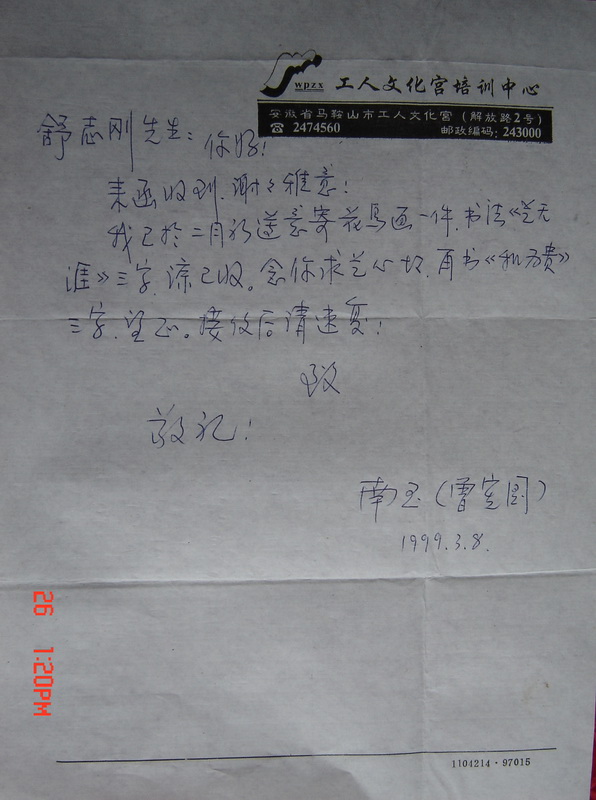 wpzx 工人文化宫培训中心
安徽省马鞍山市工人文化宫（解放路2号）
☎ 2474560 邮政编码：243000
舒志刚先生：你好！
来函收到，谢々雅意！
我已于二月份遵意寄花鸟画一件，书法《艺无
涯》三字，谅已收。念你求艺心切，再书《和为贵》
三字，望正。接收后请速复！
致
敬礼！
南玉（曹宝
1999.3.8.
26 1:20PM
1104214·97015